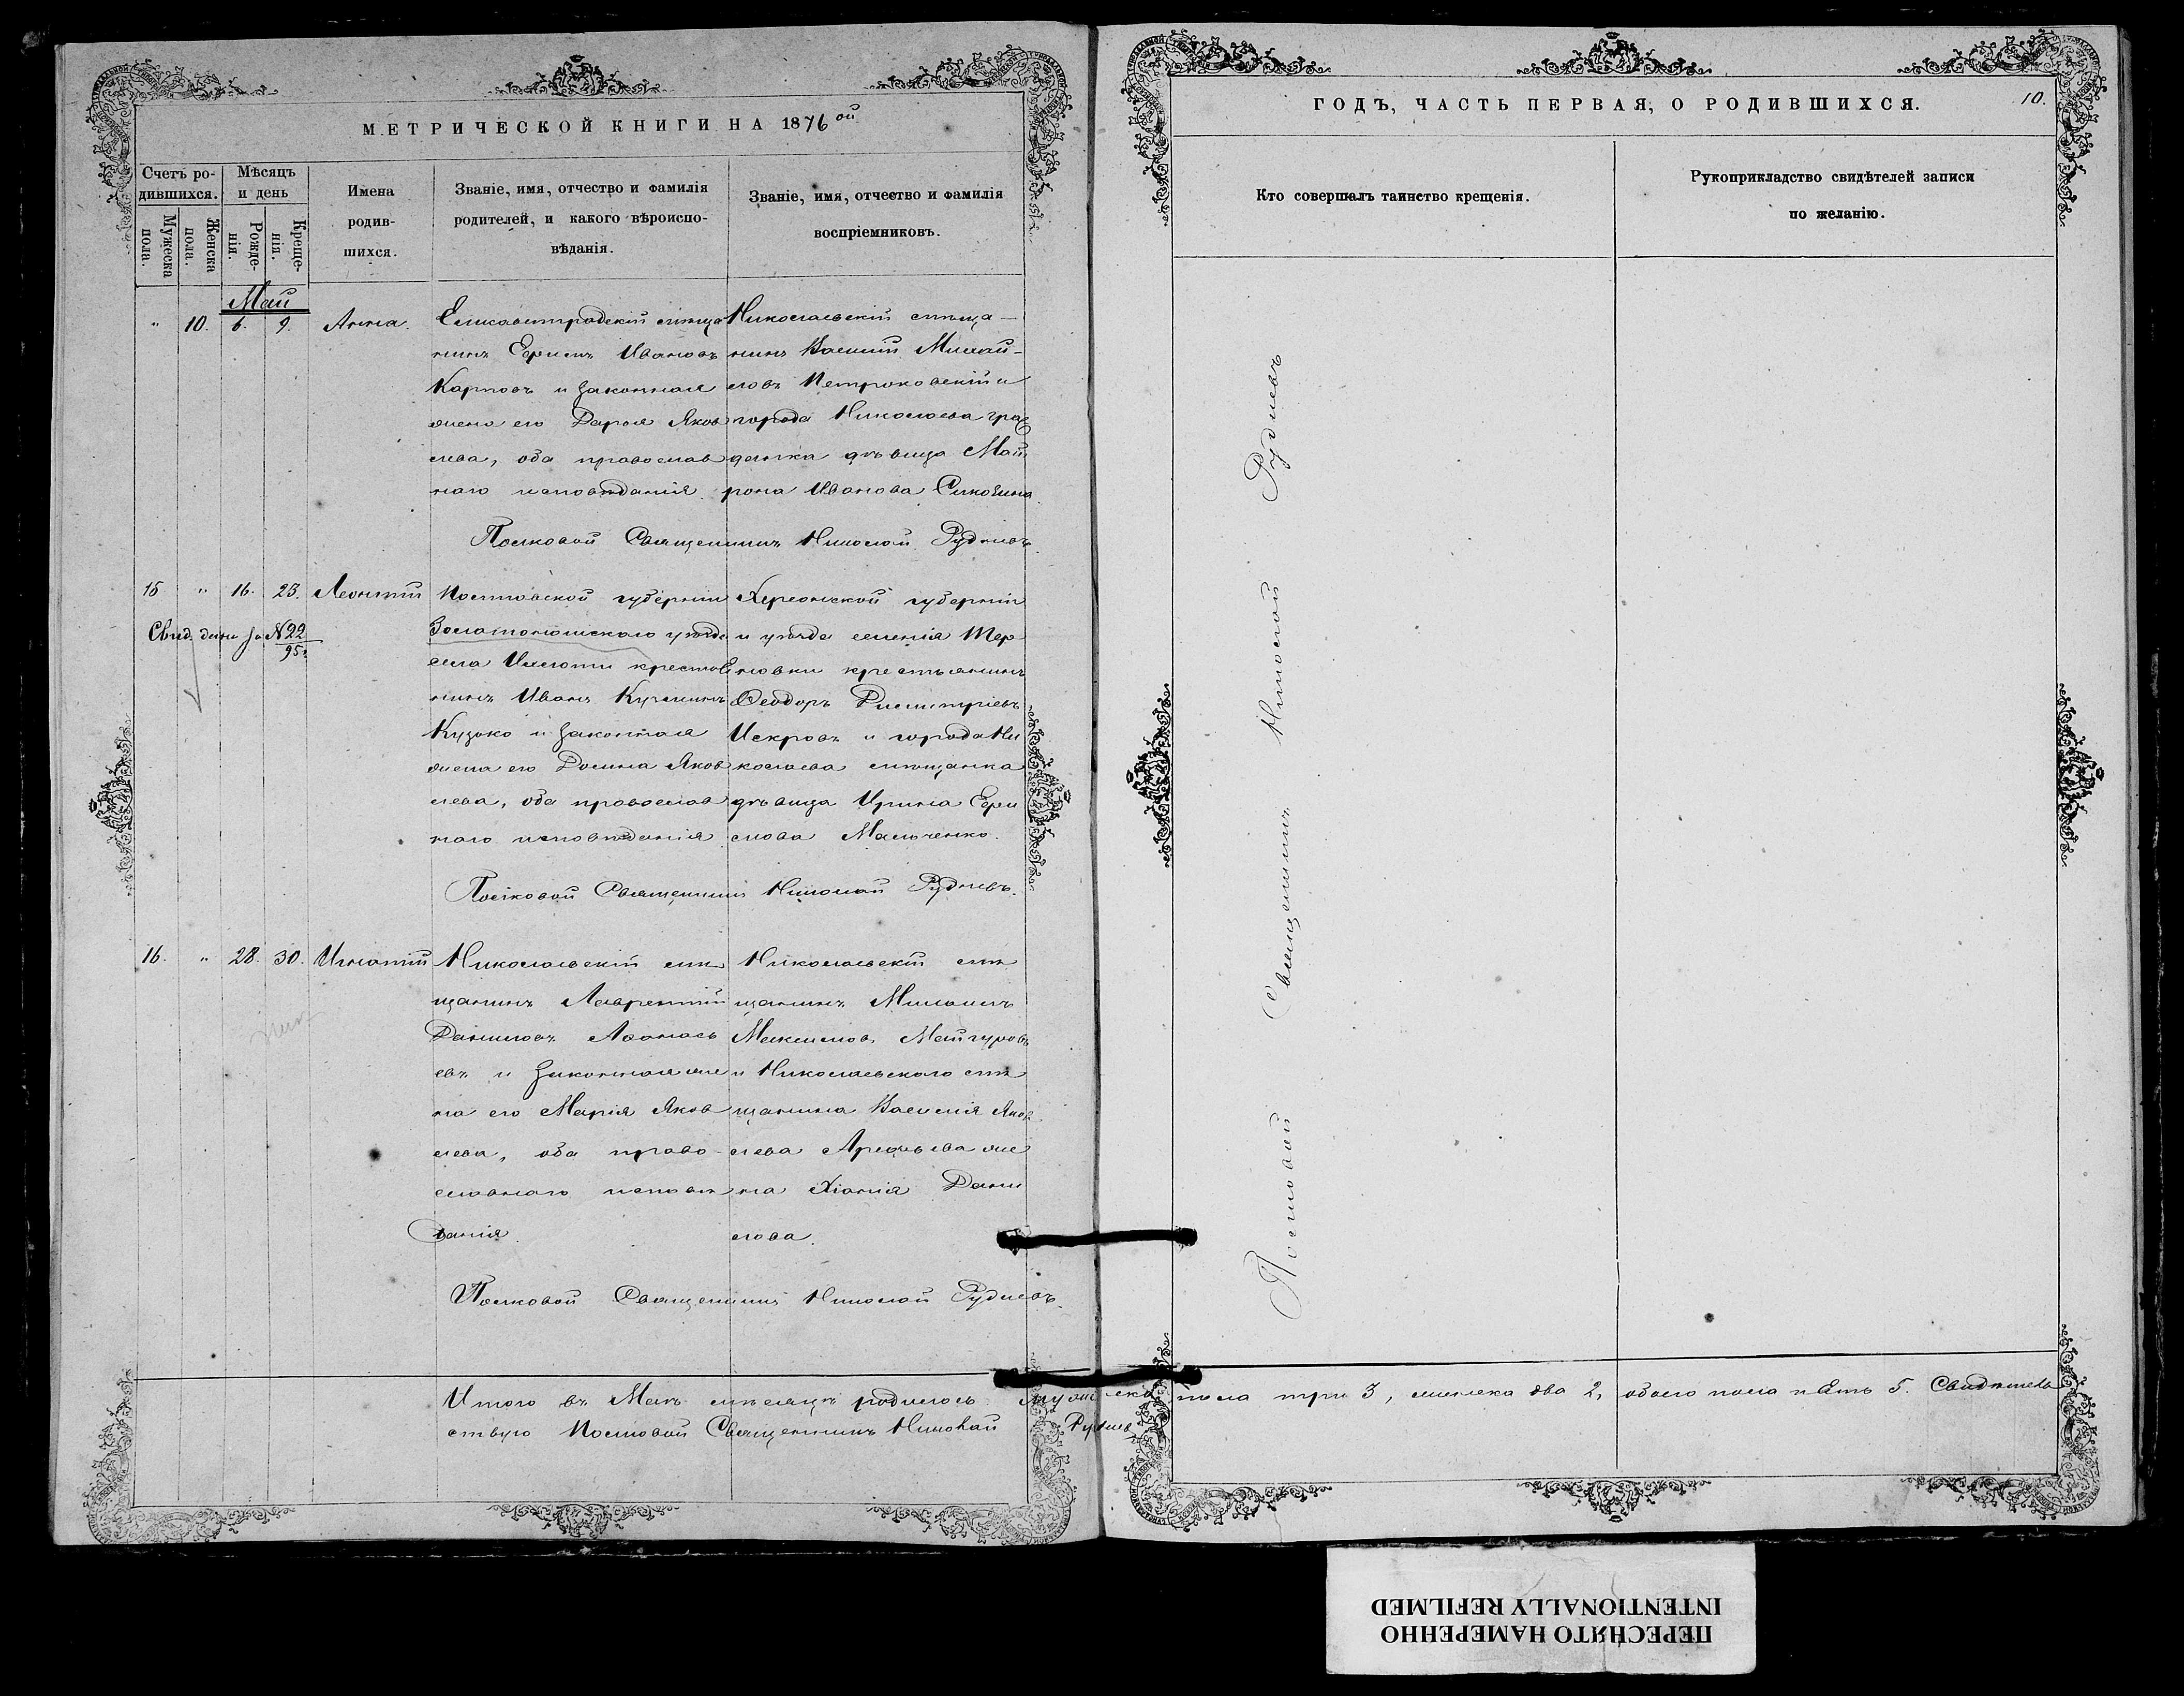 МЕТРИЧЕСКОЙ КНИГИ НА 1876ой
Счетъ ро-
дившихся.
Мѣсяцъ
и день
Мужеска
пола.
Женска
пола.
Рожде-
нія.
Креще-
нія.
Имена
родив-
шихся.
Званіе, имя, отчество и фамилія
родителей, и какого вѣроиспо-
вѣданія.
Званіе, имя, отчество и фамилія
воспріемниковъ.
Май
" 10. 6. 9. Анна.
Елисаветградскій мѣща
нинъ Ефимъ Ивановъ
Карповъ и законная
жена его Дарья Яков
лева, оба православ
наго исповѣданія.
Николаевскій мѣща-
нинъ Василій Михай-
ловъ Петроковскій и
города Николаева граж
данка дѣвица Мат
рона Иванова Сикозина.
Полковой Священникъ Николай Рудневъ.
15 " 16. 23. Леонтій
Свид. дано за №22
95г.
Полтавской губерніи
Золотоношскаго уѣзда
села крестья
нинъ Иванъ
Кузько и законная
жена его Домна Яков
лева, оба православ
наго исповѣданія.
Херсонской губерніи
и уѣзда селенія Тер
новки крестьянинъ
Ѳеодоръ Димитріевъ
Искровъ и города Ни
колаева мѣщанка
дѣвица Ирина Ефи
мова Мальченко.
Полковой Священникъ Николай Рудневъ.
16. " 28. 30. Игнатій
Николаевскій мѣ
щанинъ Лаврентій
Даниловъ Аѳанась
евъ и законная же
на его Марія Яков
лева, оба право-
славнаго исповѣ
данія.
Николаевскій мѣ
щанинъ Михаилъ
Максимовъ
и Николаевскаго мѣ
щанина Василія Яков
лева же
на Дани
лова.
Полковой Священникъ Николай Рудневъ.
Итого въ Маѣ мѣсяцѣ родилось мужеска пола три 3, женска два 2, обоего пола пять 5. Свидѣтель
ствую Полковой Священникъ Николай Рудневъ
ГОДЪ, ЧАСТЬ ПЕРВАЯ, О РОДИВШИХСЯ.
10.
Кто совершалъ таинство крещенія.
Рукоприкладство свидѣтелей записи
по желанію.
Полковой Священникъ Николай Рудневъ
ПЕРЕСНЯТО НАМЕРЕННО
INTENTIONALLY REFILMED